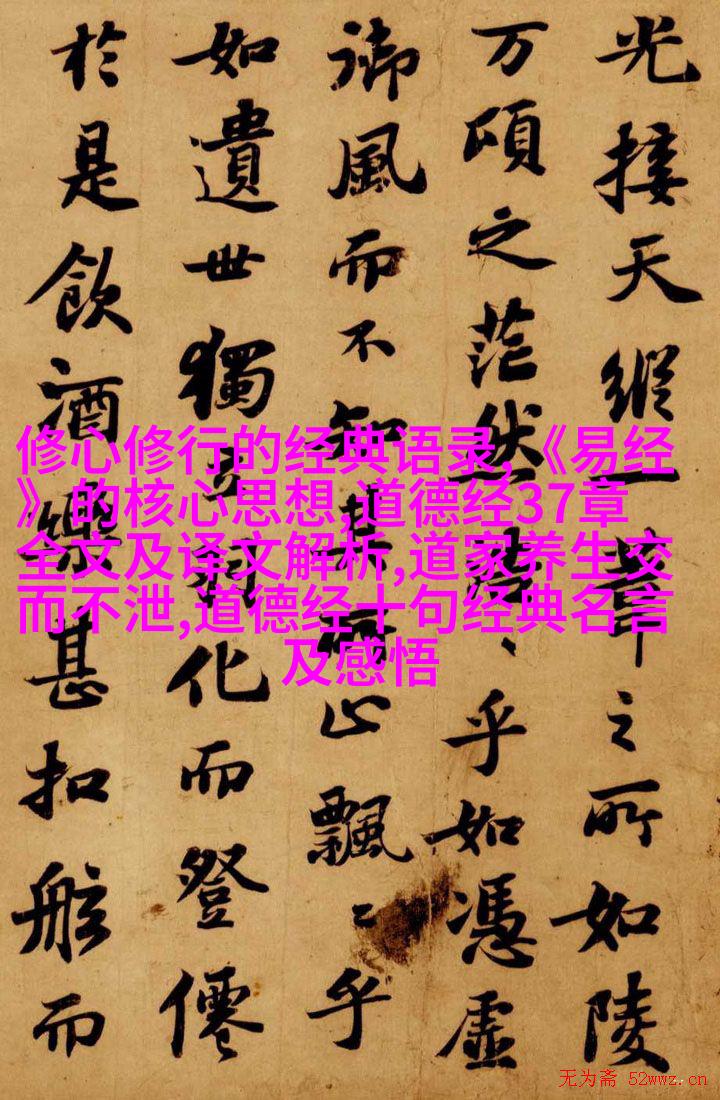 光接天縱一葦之所如陵
万頃之茫然浩〻乎如憑虛
御風而不知其所止飄〻乎
如遺世獨立羽化而登僊
於是飲酒樂甚扣舷而
修心修行的经典语录,《易经
》的核心思想,道德经37章
全文及译文解析,道家养生交
而不泄,道德经十句经典名言
及感悟
无为斋 52wwz.cn